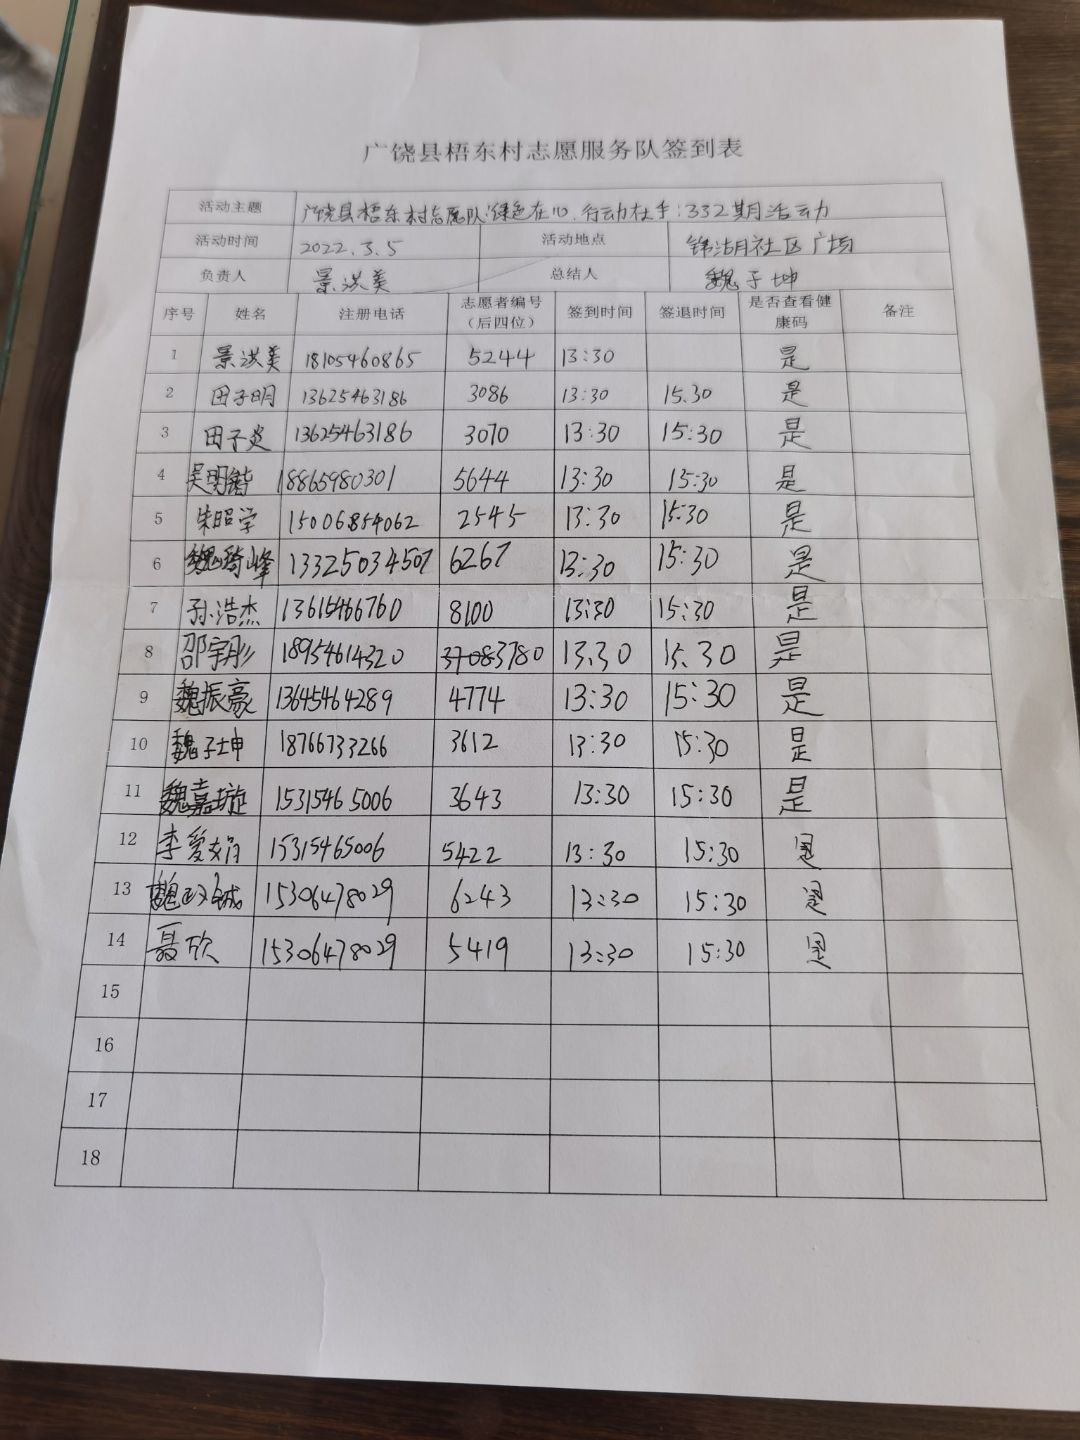 广饶县梧东村志愿服务队签到表
活动主题 广饶县梧东村志愿队"绿色在心,行动在手"332期活动
活动时间 2022.3.5 活动地点 锦湖社区广场
负责人 景洪美 总结人 魏子坤
序号 姓名 注册电话 志愿者编号(后四位) 签到时间 签退时间 是否查看健康码 备注
1 景洪美 18105460865 5244 13:30 是
2 田子明 13625463186 3086 13:30 15.30 是
3 田子炎 13625463186 3070 13:30 15:30 是
4 吴明锴 18865980301 5644 13:30 15:30 是
5 朱昭学 15006854062 2545 13:30 15:30 是
6 魏琦峰 13325034507 6267 13:30 15:30 是
7 孙浩杰 13615466760 8100 13:30 15:30 是
8 邵宇彤 18954614320 3780 13.30 15.30 是
9 魏振豪 13645464289 4774 13:30 15:30 是
10 魏子坤 18766733266 3612 13:30 15:30 是
11 魏嘉璇 15315465006 3643 13:30 15:30 是
12 李爱娟 15315465006 5422 13:30 15:30 是
13 魏 15306478029 6243 13:30 15:30 是
14 聂欣 15306478029 5419 13:30 15:30 是
15
16
17
18